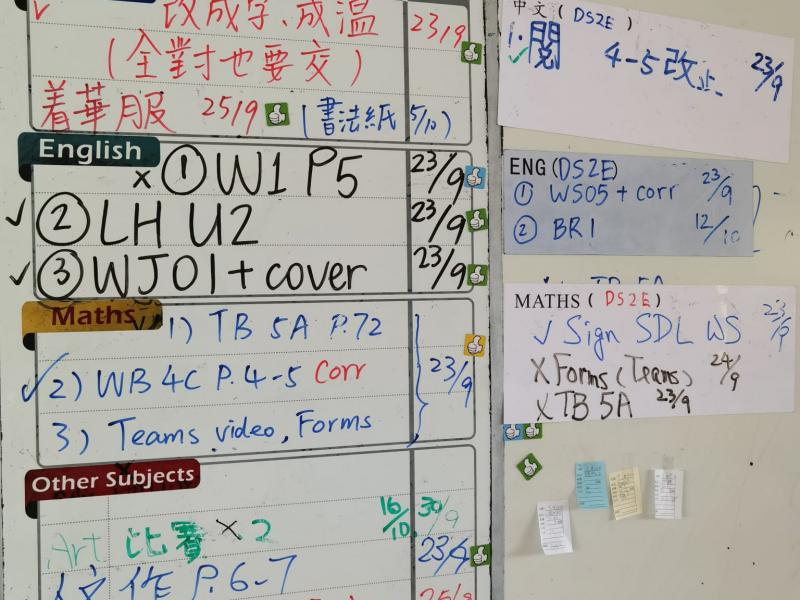 改成字、成溫 23/9
(全對才也要交)
着華服 25/9 (書法紙 5/10)
English
x ① W1 P5 23/9
✓ ② LH U2 23/9
✓ ③ WJ01 + cover 23/9
Maths
1) TB 5A P.72
✓ 2) WB 4C P.4-5 Corr 23/9
3) Teams video, Forms
Other Subjects
Art 比賽 x 2 16/10 30/9
作 P.6-7 23/9
25/9
中文 (DS2E)
1. 閱 4-5 改正 23/9
ENG (DS2E)
① WS05 + corr 23/9
② BR1 12/10
TB 5A
MATHS (DS2E)
✓ Sign SDL WS 23/9
x Forms (Teams) 24/9
x TB 5A 23/9